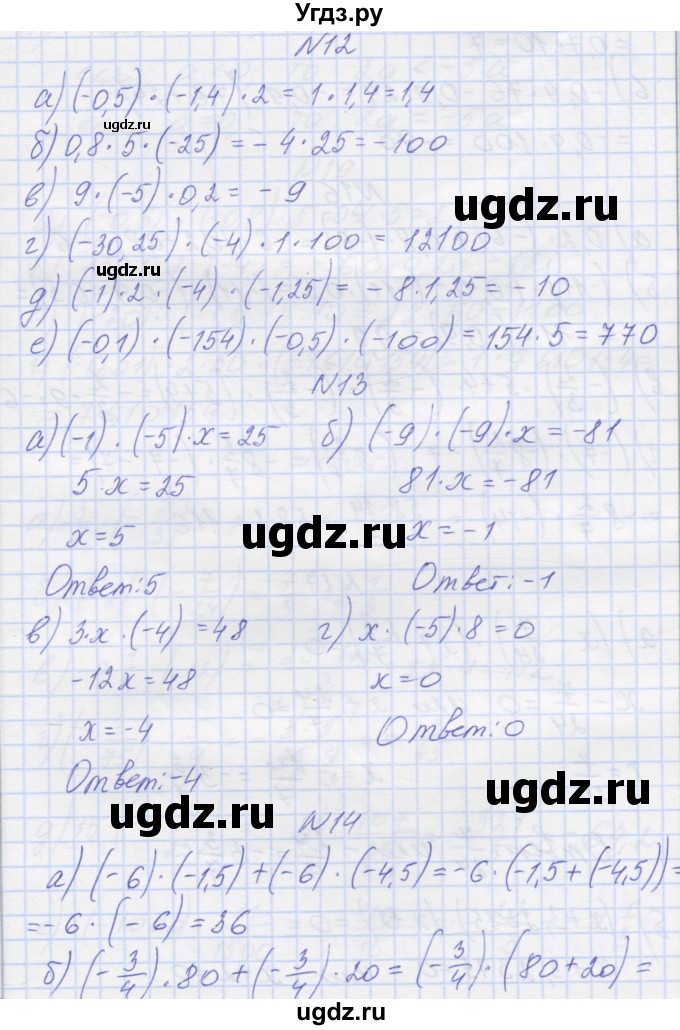 Угдз.ру
N12
а) (-0,5) · (-1,4) · 2 = 1 · 1,4 = 1,4
ugdz.ru
б) 0,8 · 5 · (-25) = - 4 · 25 = -100
в) 9 · (-5) · 0,2 = - 9
ugdz.ru
г) (-30,25) · (-4) · 1 · 100 = 12100
ugdz.ru
д) (-1) · 2 · (-4) · (-1,25) = - 8 · 1,25 = - 10
е) (-0,1) · (-154) · (-0,5) · (-100) = 154 · 5 = 770
N13
а) (-1) · (-5) · x = 25 б) (-9) · (-9) · x = -81
5 · x = 25 81 · x = -81
ugdz.ru
x = 5 x = -1
Ответ: 5 Ответ: -1
в) 3 · x · (-4) = 48 г) x · (-5) · 8 = 0
-12x = 48 x = 0
x = -4 Ответ: 0
Ответ: -4
ugdz.ru ugdz.ru
N14
а) (-6) · (-1,5) + (-6) · (-4,5) = -6 · (-1,5 + (-4,5)) =
= -6 · (-6) = 36
б) (-3/4) · 80 + (-3/4) · 20 = (-3/4) · (80 + 20) =
ugdz.ru